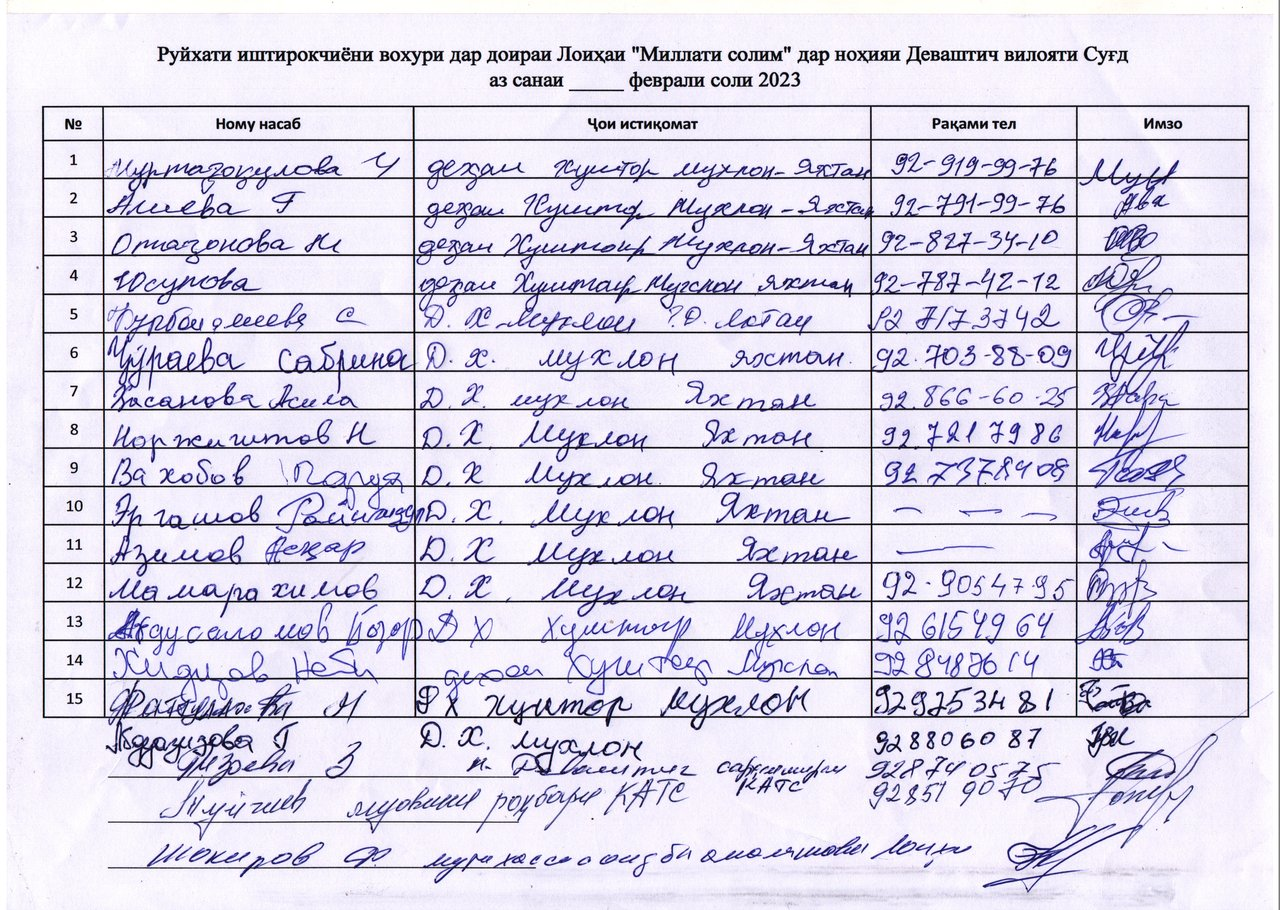 Руйхати иштирокчиёни вохури дар доираи Лоиҳаи "Миллати солим" дар ноҳияи Деваштич вилояти Суғд
аз санаи _____ феврали соли 2023
№ Ному насаб Ҷои истиқомат Рақами тел Имзо
1 Муртазоқулова деҳаи Хуштор Мухлон-Яхтан 92-919-99-76
2 Алиева Г деҳаи Хуштор Мухлон-Яхтан 92-791-99-76
3 Отаҷонова М деҳаи Хуштоир Мухлон-Яхтан 92-827-34-10
4 Юсупова деҳаи Хуштоир Мухлон Яхтан 92-787-42-12
5 С Д. Х-Мухлон 92 7173742
6 Ҷӯраева Сабрина Д. х. мухлон яхтан. 92.703-88-09
7 Хасанова Асила Д. Х. мухлон Яхтан 92.866-60-25
8 Норжигитов Н Д. Х. Мухлон Яхтан 92.721 79 86
9 Вахобов Д. Х Мухлон. Яхтан 92 7378409
10 Эргашов Д. Х. Мухлон Яхтан — — —
11 Азимов Асқар Д. Х Мухлон Яхтан —
12 Мамарахимов Д. Х. Мухлон Яхтан 92-9054795
13 Абдусаломов Бозор Д Х Хуштоир Мухлон 92 6154964
14 Наби деҳаи Мухлон 92 8487614
15 М Хуштор Мухлон 929253481
Г Д. Х. мухлон 928806087
З Деваштич 928740575
муовини роҳбари КАТС КАТС 92851 9070
Шокиров Ф.